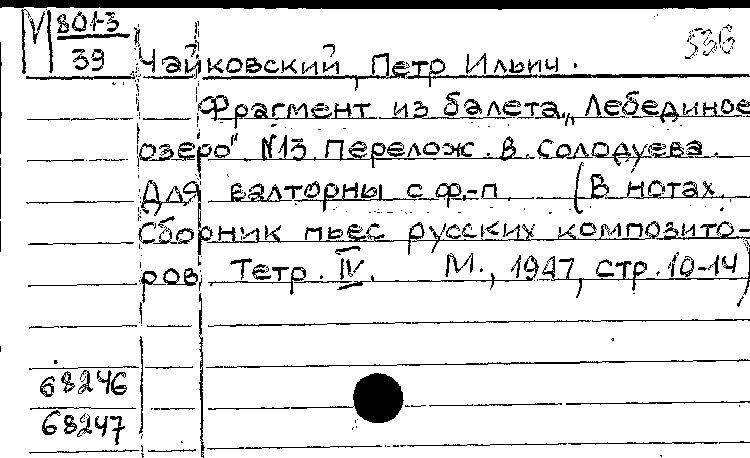 М 801-3
39
536
Чайковский, Петр Ильич.
Фрагмент из балета „Лебединое
озеро" №13. Перелож. В. Солодуева.
Для валторны с ф.-п. (В нотах.
Сборник пьес русских композито-
ров. Тетр. IV. М., 1947, стр. 10-14)
68246
68247